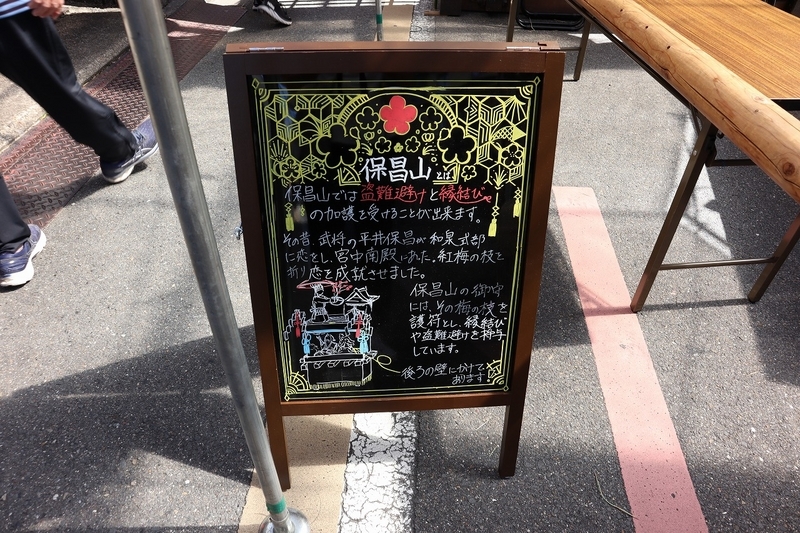 保昌山とは
保昌山では盗難避けと縁結び
の加護を受けることが出来ます。
その昔、武将の平井保昌が和泉式部
に恋をし、宮中南殿にあった、紅梅の枝を
折り恋を成就させました。
保昌山の御守
には、その梅の枝を
護符とし、縁結び
や盗難避けを授与
しています。
後ろの壁にかけて
あります